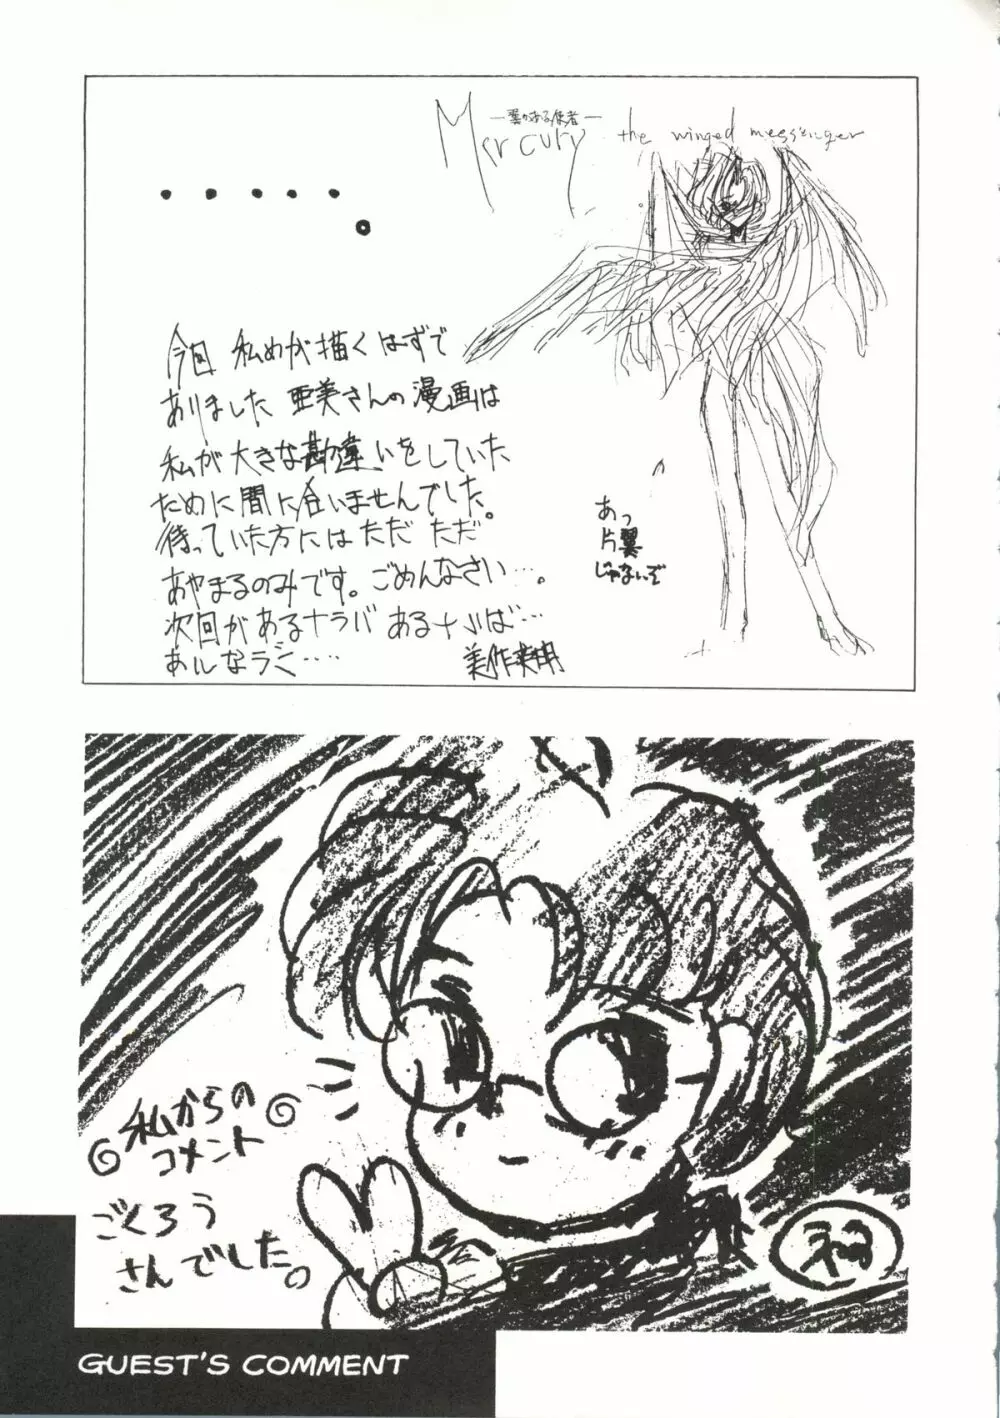 Mercury the winged messenger
—翼のある使者—
・・・・・。
今回 私めが描くはずで
ありました 亜美さんの漫画は
私が大きな勘違いをしていた
ために間に合いませんでした。
待っていた方にはただ ただ
あやまるのみです。ごめんなさい…。
次回があるナラバ あるナレば…
あっ
片翼
じゃないぞ
私からの
コメント
ごくろう
さんでした。
GUEST'S COMMENT